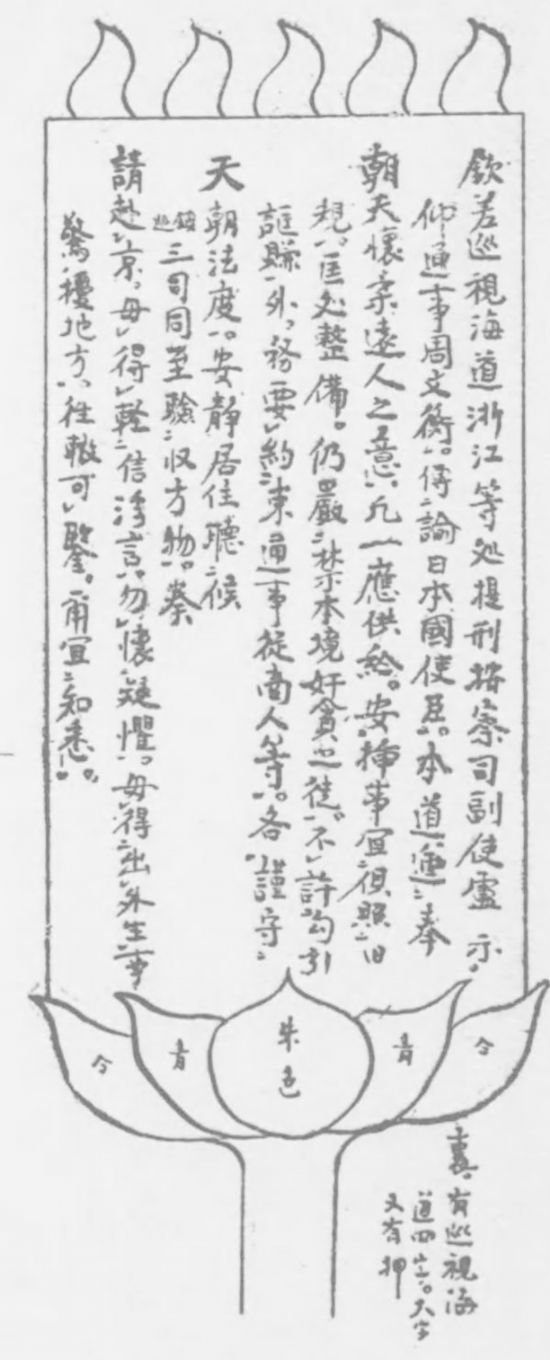 欽差巡視海道浙江等処提刑按察司副使盧 示。
仰通事周文衡。傳諭日本國使臣。本道遵奉
朝天懷柔遠人之意。凡一應供給。安挿事宜俱照旧
規。区処整備。仍嚴禁本境奸貪之徒。不許勾引
誆賺外。務要約束通事従商人等。各謹守
天朝法度。安靜居住聴候
鎮巡三司同至驗収方物。奏
請赴京。毋得軽信浮言。勿懷疑懼。毋得出外生事
驚擾地方。往轍可鑒。爾宜知悉。
朱色
青
青
今
今
裏有巡視海
道四字。大字
又有押